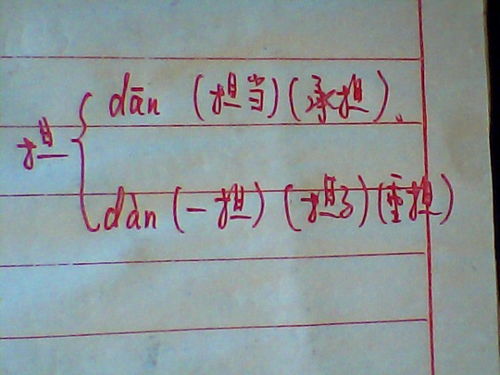 dān (担当)(承担)、
担
dàn (一担)(担子)(重担)